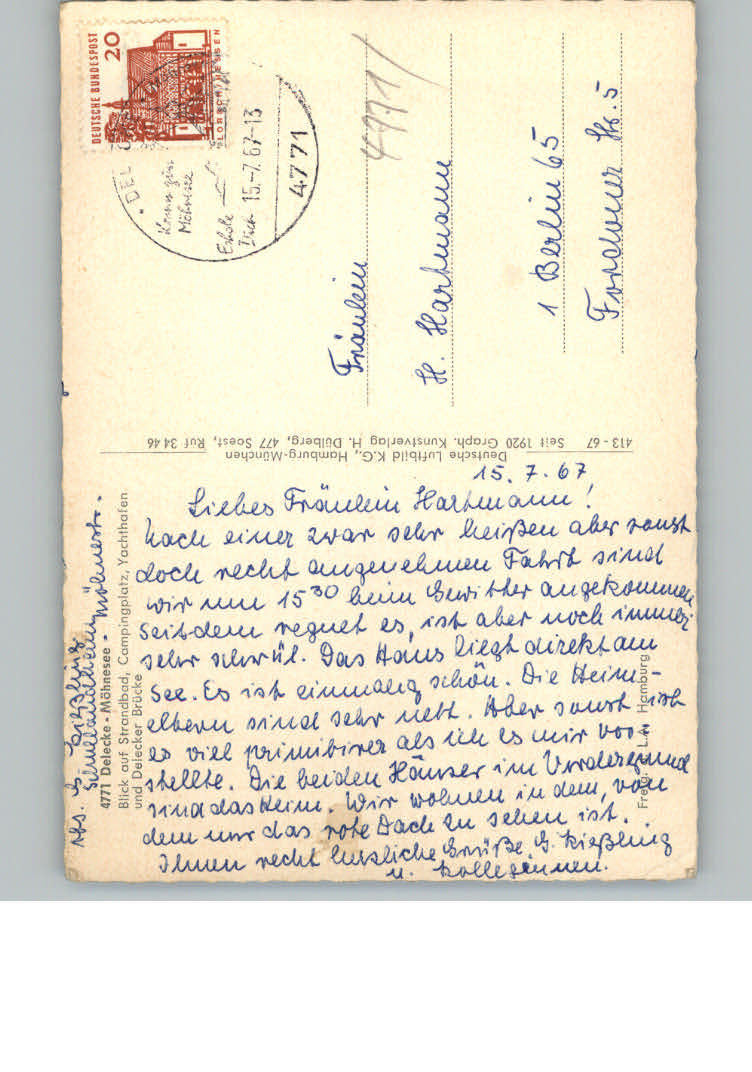 DEUTSCHE BUNDESPOST
20
LORSCH/HESSEN
DEL
Komm zum
Möhnesee
Erhole
Dich
15.-7.67-13
4771
4771/
Fräulein
H. Hartmann
1 Berlin 65
Str. 5
413 - 67 Seit 1920 Graph. Kunstverlag H. Dülberg, 477 Soest, Ruf 34 46
Deutsche Luftbild K.G., Hamburg-München
15. 7. 67
Liebes Fräulein Hartmann!
Nach einer zwar sehr heißen aber sonst
doch recht angenehmen Fahrt sind
wir um 15³⁰ beim Gewitter angekommen
Seitdem regnet es, ist aber noch immer
sehr schwül. Das Haus liegt direkt am
See. Es ist einmalig schön. Die Heim-
eltern sind sehr nett. Aber sonst ist
es viel primitiver als ich es mir vor-
stellte. Die beiden Häuser im Vordergrund
sind das Heim. Wir wohnen in dem, von
dem nur das rote Dach zu sehen ist.
Ihnen recht herzliche Grüße G. Kießling
u. Kolleginnen.
Abs. G. Kießling
Schullandheim
4771 Delecke - Möhnesee - Möhnestr.
Blick auf Strandbad, Campingplatz, Yachthafen
und Delecker Brücke
Freig. L.A. Hamburg